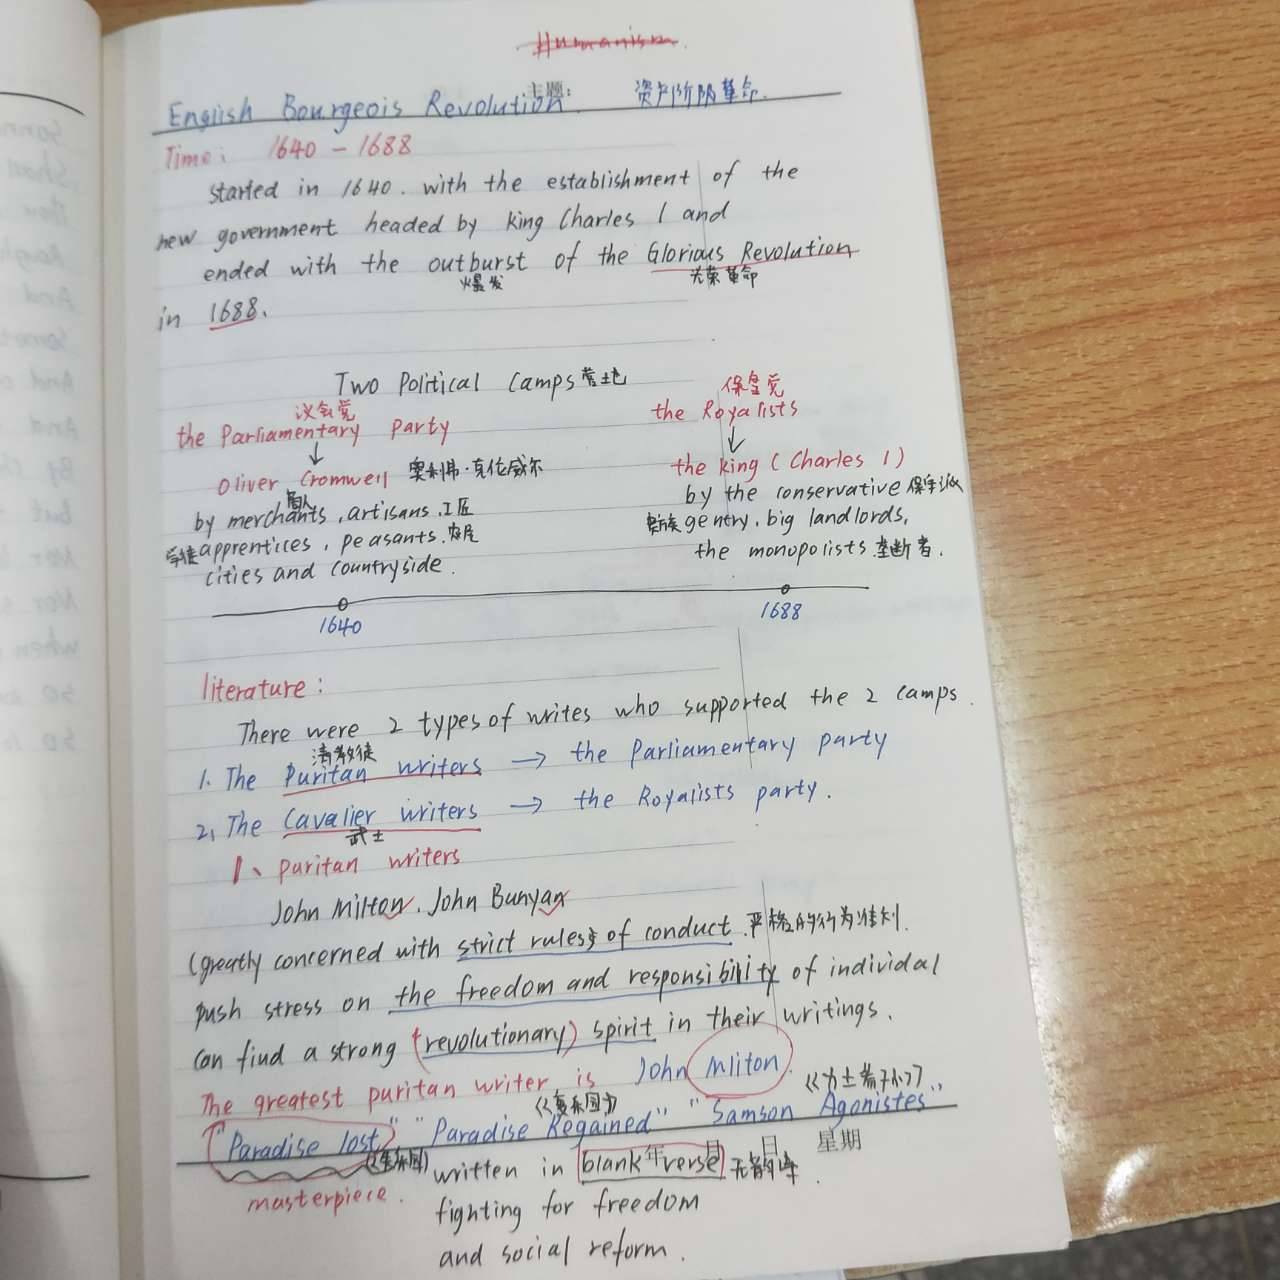 Humanism
主题:
English Bourgeois Revolution. 资产阶级革命.
Time: 1640 - 1688
started in 1640. with the establishment of the
new government headed by king Charles 1 and
ended with the outburst of the Glorious Revolution
爆发 光荣革命
in 1688.
Two Political Camps 营地
议会党 保皇党
the Parliamentary party the Royalists
Oliver Cromwell 奥利弗·克伦威尔 the king (Charles 1)
商人
by merchants, artisans, 工匠 by the conservative 保守派
学徒 apprentices, peasants. 农民 贵族 gentry, big landlords,
cities and countryside. the monopolists 垄断者.
1640 1688
literature:
There were 2 types of writes who supported the 2 camps.
清教徒
1. The Puritan writers → the Parliamentary party
2, The Cavalier writers → the Royalists party.
武士
1、 puritan writers
John Milton. John Bunyan
Greatly concerned with strict rules of conduct. 严格的行为准则.
push stress on the freedom and responsibility of individal
can find a strong (revolutionary) spirit in their writings.
The greatest puritan writer is John Mliton.
《复乐园》 《力士参孙》
"Paradise lost" "Paradise Regained" "Samson Agonistes"
年 月 日 星期
written in blank verse
masterpiece.
fighting for freedom
and social reform.